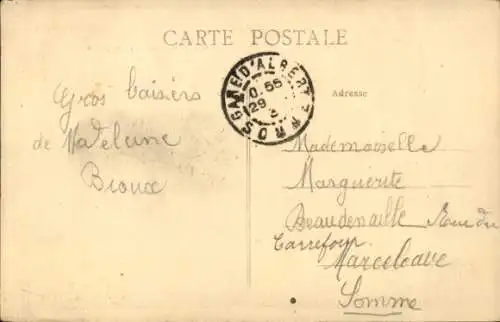 CARTE POSTALE
GARE D'ALBERT
0.55
29
3
SOMME
Adresse
Gros baisers
de Madeleine
Bioux
Mademoiselle
Marguerite
Beaudenaille Rue du
Carrefour
Marcelcave
Somme